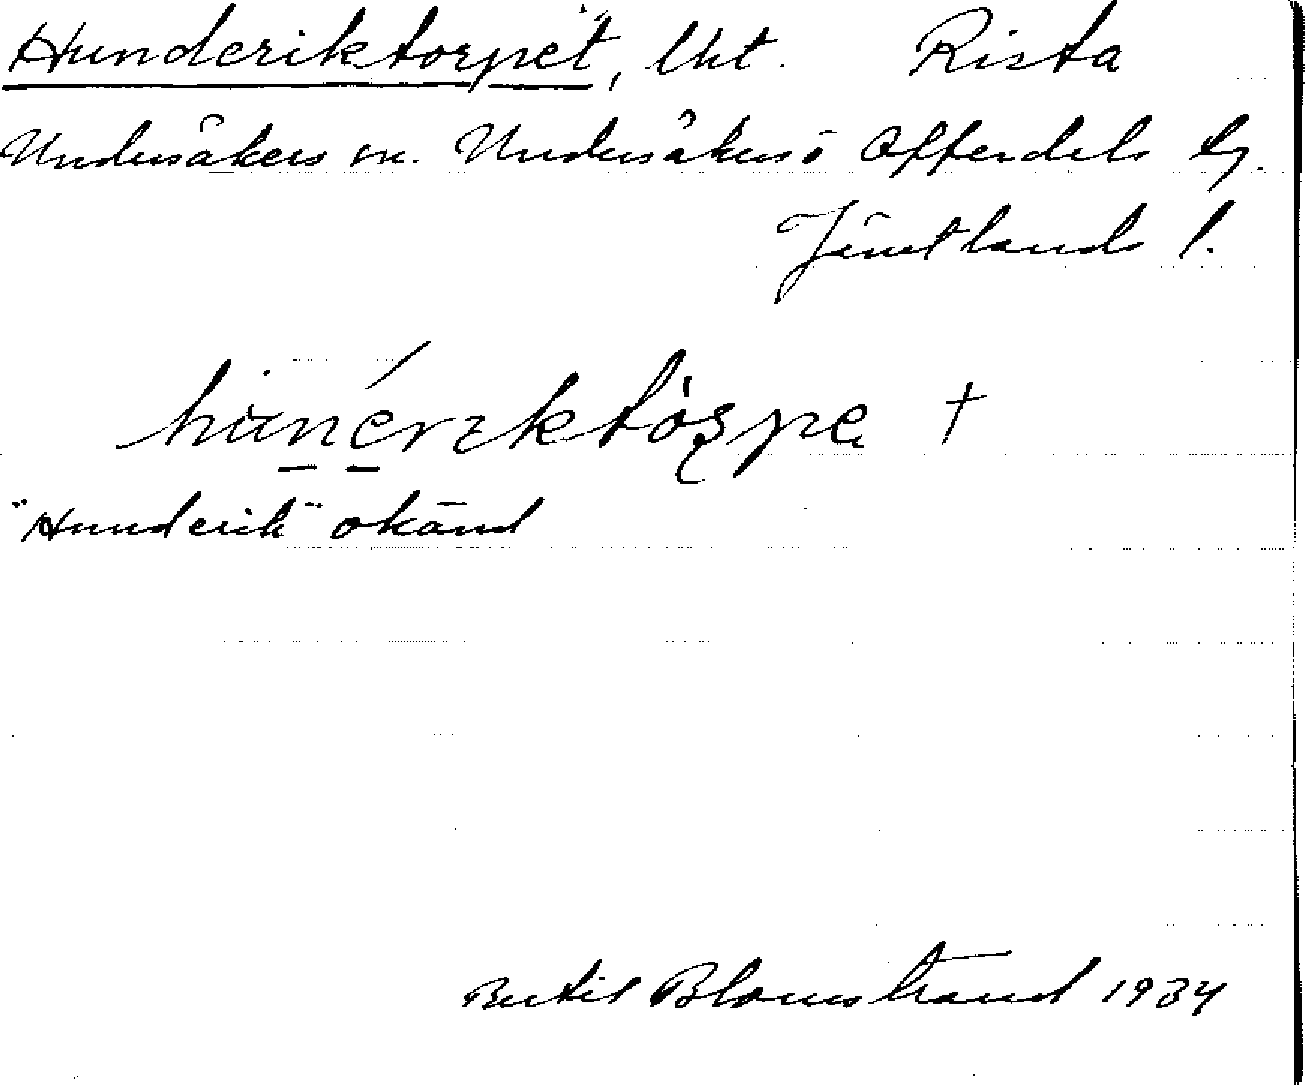 Hunderiktorpet, lht. Rista
Undersåkers sn. Undersåkers o Offerdals tg.
Jämtlands l.
hùnérıktòṣpe +
"Hunderik" okänd
Bertil Blomstrand 1934